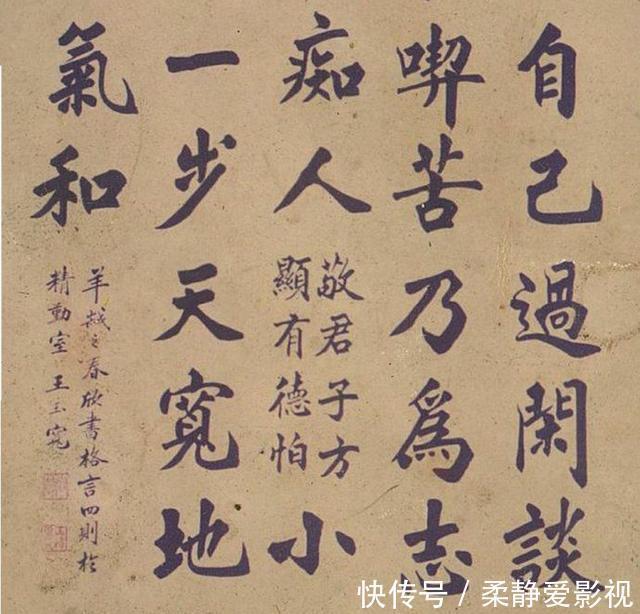 自己過閑談
喫苦乃爲志
痴人
敬君子方
顯有德怕
小
一步天寬地
氣和
春欣書格言四則於
精勤室 王
快传号／柔静爱影视